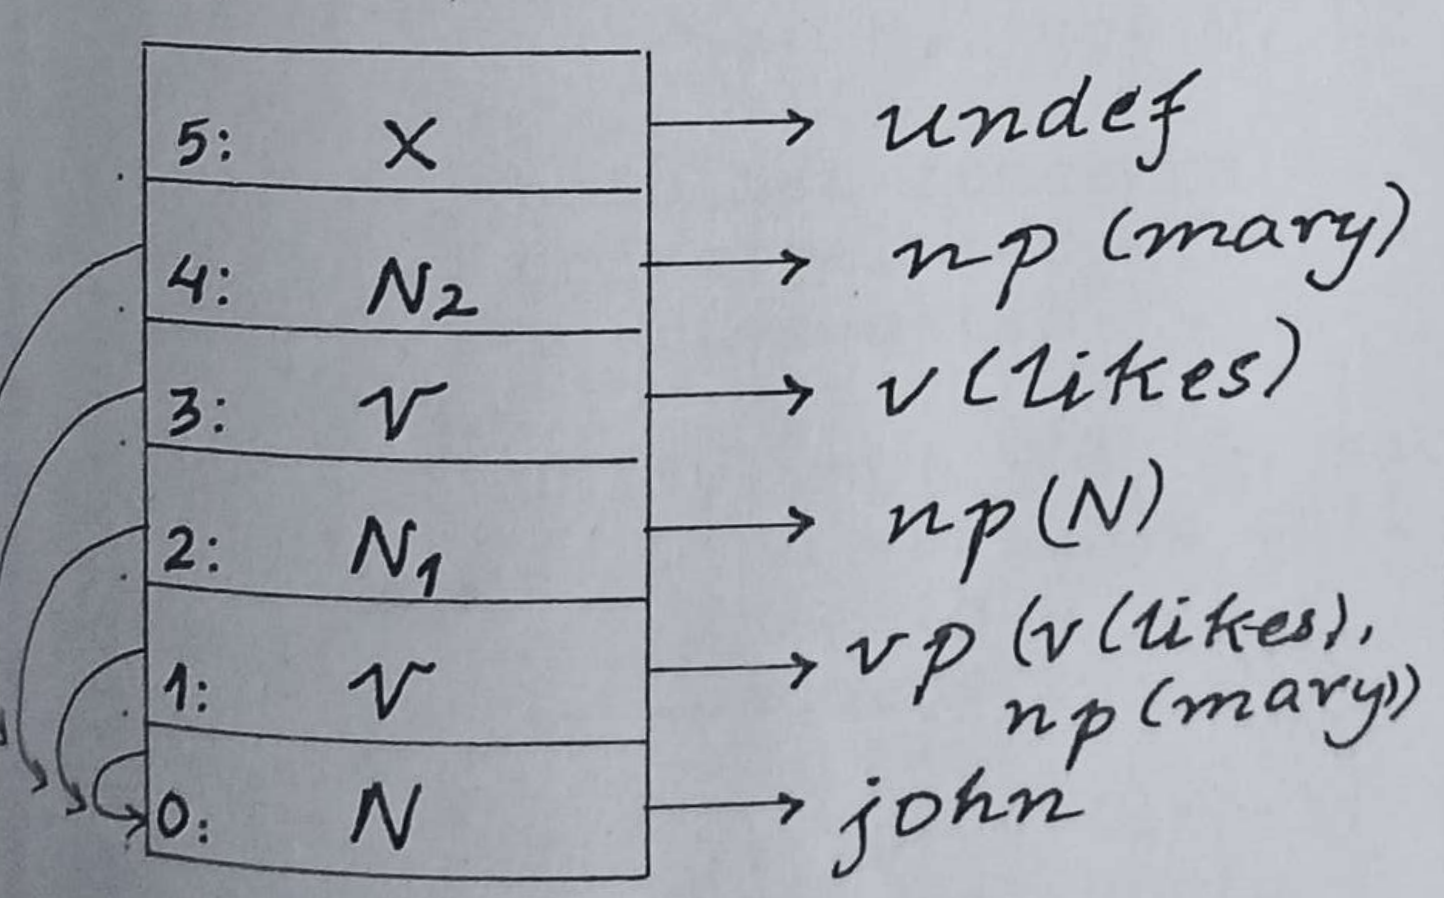 5: X → undef
4: N₂ → np (mary)
3: V → v (likes)
2: N₁ → np (N)
1: V → vp (v (likes),
np (mary))
0: N → john